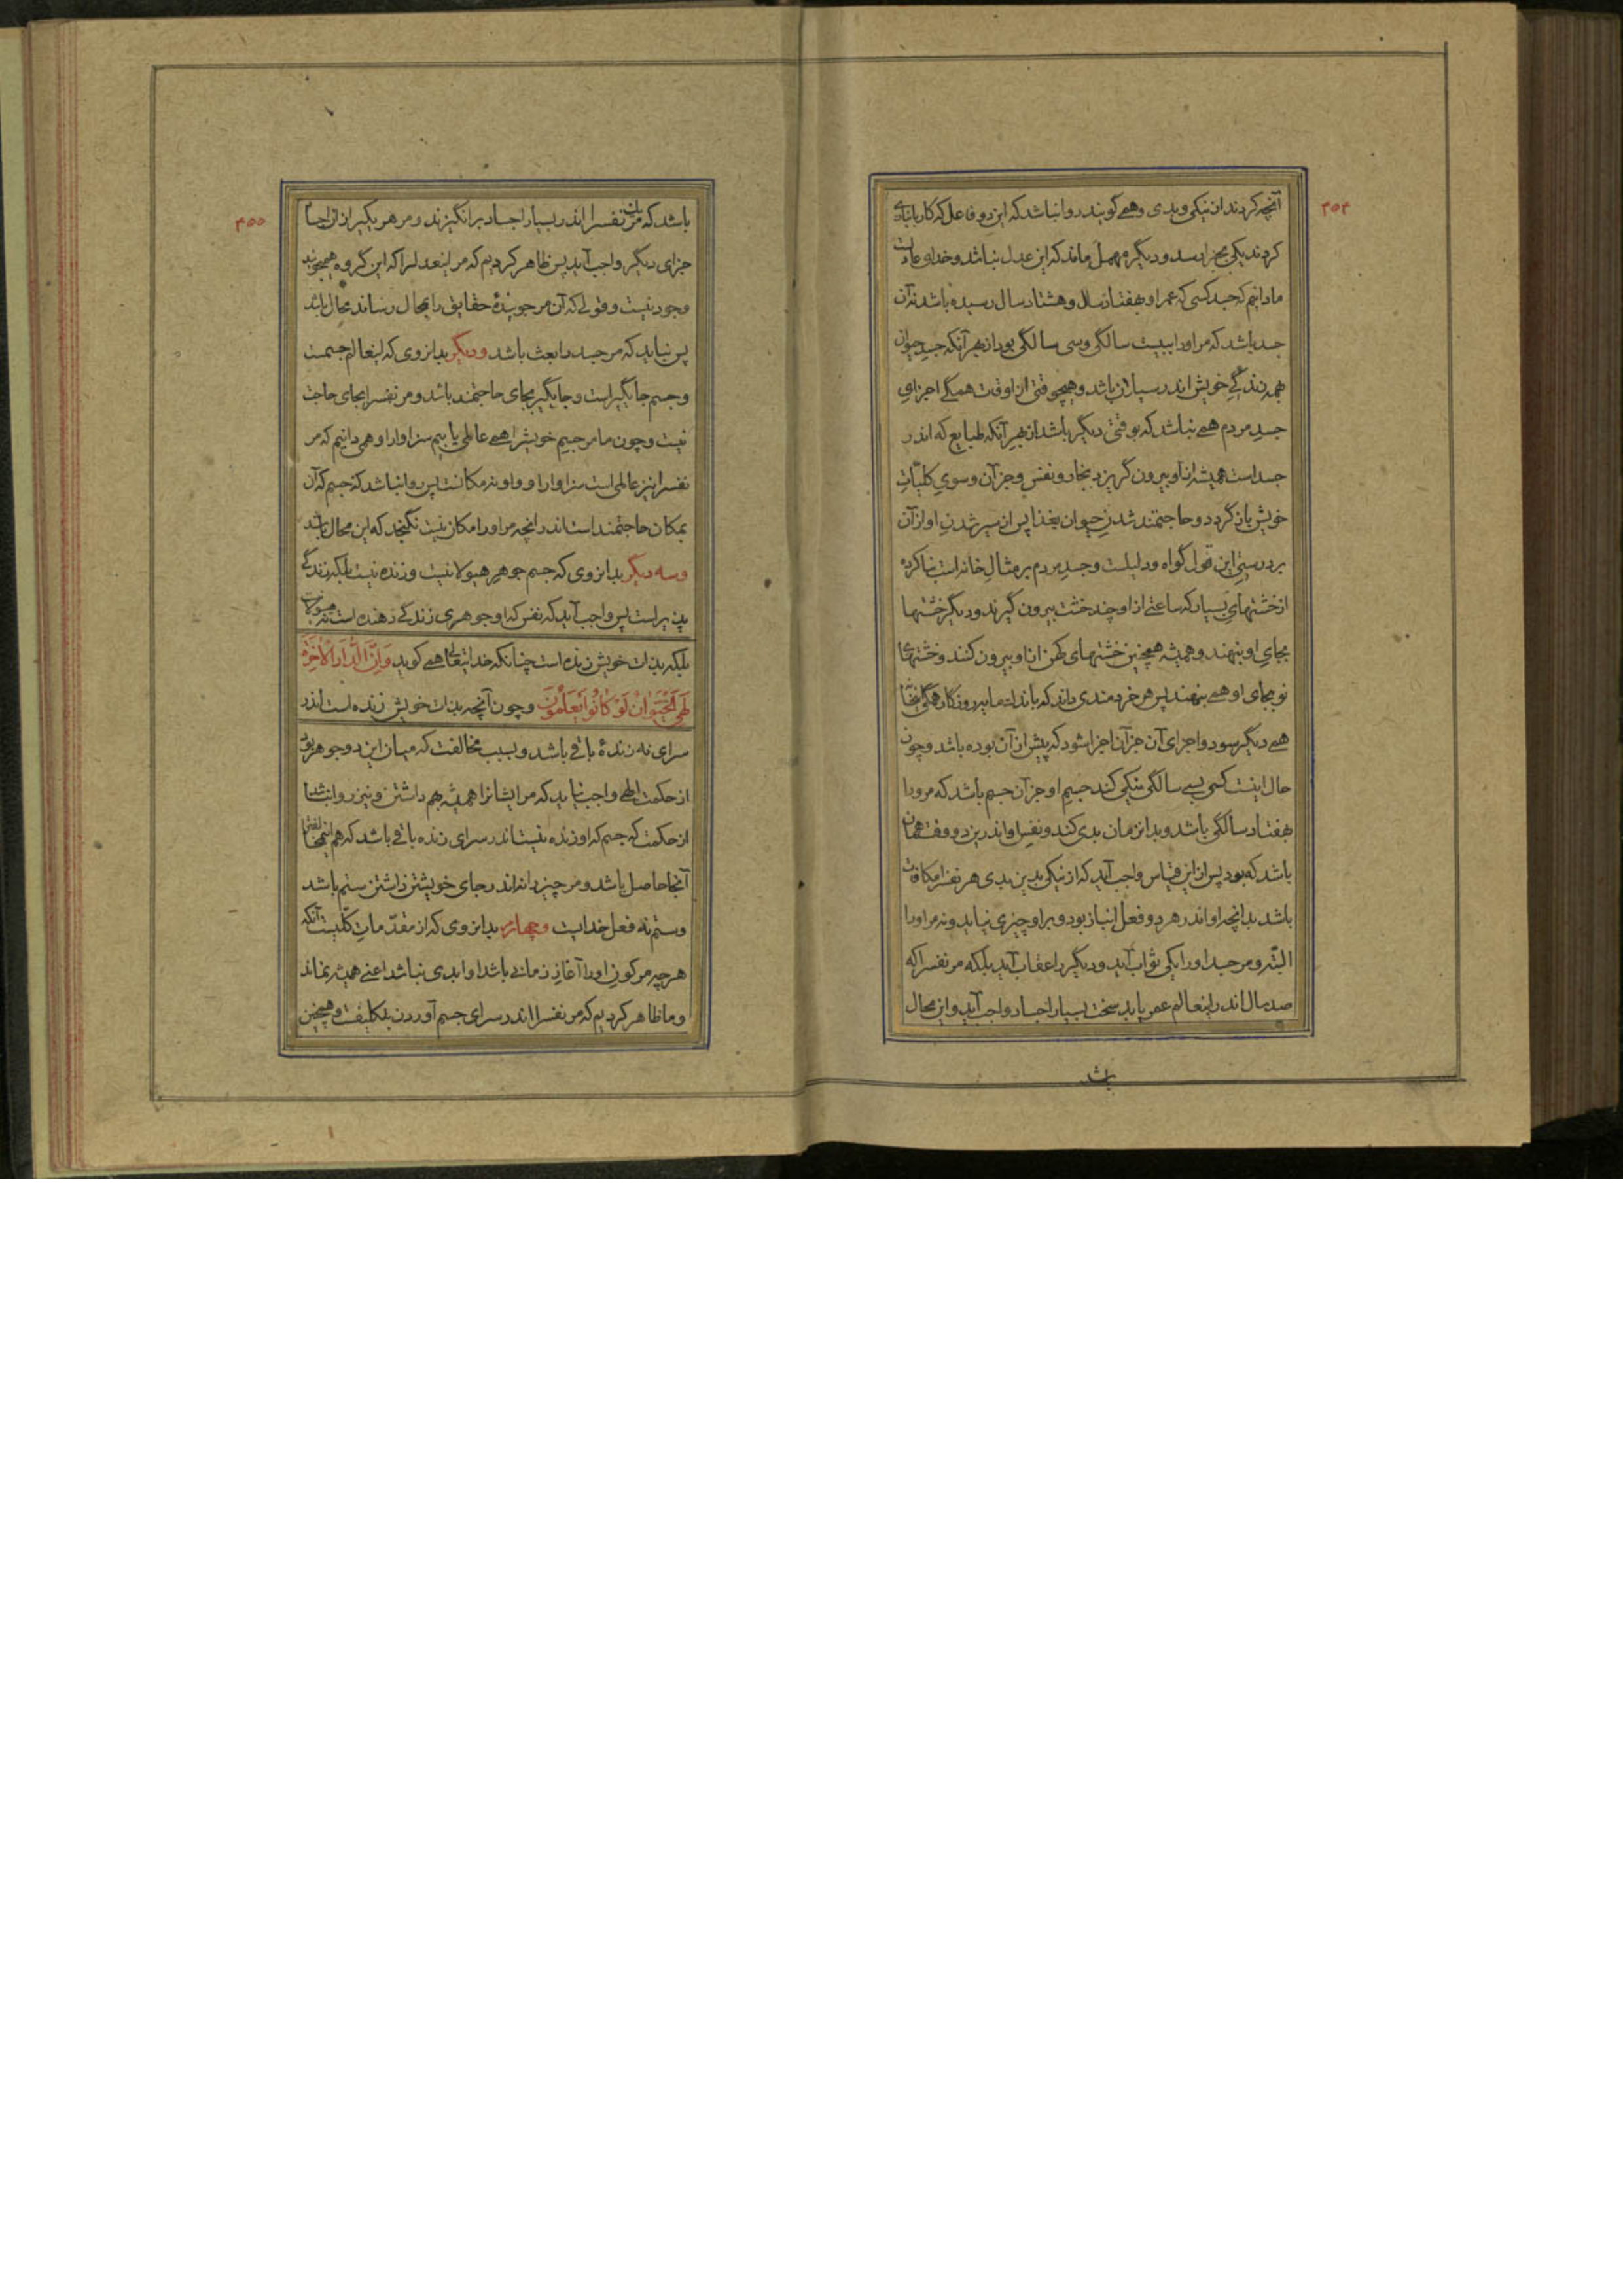 ۴۵۴
آنچه کردند از نیکی و بدی و همی گویند روا نباشد که این دو فاعل که کار بانبازی
کردند یکی بجزا رسد و دیگر مهمل ماند که این عدل نباشد و خدای عادلست
ما دانیم که جسد کسی که عمر او هفتاد سال و هشتاد سال رسیده باشد نه آن
جسد باشد که مر او را ببیست سالگی و سی سالگی بود از بهر آنکه جسد حیوان
همه زندگی خویش اندر سیلان باشد و هیچ وقتی از اوقات همگی اجزای
جسد مردم همی نباشد که بوقتی دیگر باشد از بهر آنکه طبایع که اندر
جسد است همیشه از او بیرون گریزد ببخار و نفس و جز آن و سوی کلیات
خویش باز گردد و حاجتمند شدن حیوان بغذا پس از سیر شدن او از آن
بر درستی این قول گواه و دلیلست و جسد مردم بر مثال خانه است بنا کرده
از خشتهای بسیار که ساعتی از او چند خشت بیرون گیرند و دیگر خشتها
بجای او بنهند و همیشه همچنین خشتهای کهن از او بیرون کنند و خشتهای
نو بجای او همی بنهند پس هر خردمندی داند که باندک مایه روزگار همگی آن خانه
همی دیگر شود و اجزای آن جز آن اجزا شود که پیش از آن بوده باشد و چون
حال اینست کسی بسی سالگی نیکی کند جسم او جز آن جسم باشد که مرو را
بهفتاد سالگی باشد و بدان زمان بدی کند و نفس او اندرین دو وقت همان
باشد که بود پس از این قیاس واجب آید که از نیکی بدین بدی هر نفس را مکافات
باشد بدانچه او اندر هر دو فعل انباز بود و بر او چیزی نیاید و نه مر او را
البته و مر جسد او را یکی ثواب آید و دیگر را عقاب آید بلکه مر نفس را که
صد سال اندر این عالم عمر یابد سخت بسیار اجساد واجب آید و این محال
باشد
۴۵۵
باشد که مر یک نفس را اندر بسیار اجساد برانگیزند و مر هر یکی را از آن اجساد
جزای دیگر واجب آید پس ظاهر کردیم که مر این عدل را که این گروه همی جویند
وجود نیست و قولی که آن مر جویندهٔ حقایق را بمحال رساند محال باشد
پس نباید که مر جسد را بعث باشد و دیگر بدانروی که این عالم جسمست
و جسم جایگیر است و جایگیر بجای حاجتمند باشد و مر نفس را بجای حاجت
نیست و چون ما مر جسم خویش را همی عالمی یابیم سزاوار او همی دانیم که مر
نفس را نیز عالمی است سزاوار او و او نه مکانست پس روا نباشد که جسم که آن
بمکان حاجتمند است اندر آنچه مر او را مکان نیست نگنجد که این محال باشد
و سه دیگر بدانروی که جسم جوهر هیولانیست و زنده نیست بلکه زندگی
پذیر است پس واجب آید که نفس که او جوهری زندگی دهنده است نه هیولانی
بلکه بذات خویش زنده است چنانکه خدایتعالی همی گوید وَاِنَّ الدّٰارَ الاٰخِرَةَ
لَهِیَ الْحَیَوٰانُ لَوْ کٰانُوا یَعْلَمُونَ و چون آنچه بذات خویش زنده است اندر
سرای نه زندهٔ باقی باشد و بسبب مخالفت که میان این دو جوهر بود
از حکمت الهی واجب نیاید که مر ایشانرا همیشه بهم داشتن و نیز روا نباشد
از حکمت که جسم که او زنده نیست اندر سرای زنده باقی باشد که هم اینجا
آنجا حاصل باشد و مر چیز را نه اندر جای خویشتن داشتن ستم باشد
و ستم نه فعل خدایست و چهارم بدانروی که از مقدمات کلیست آنکه
هر چه مر کون او را آغاز زمانی باشد او ابدی نباشد اعنی همیشه نماند
و ما ظاهر کردیم که مر نفس را اندر سرای جسم آوردن بتکلیفست و همچنین